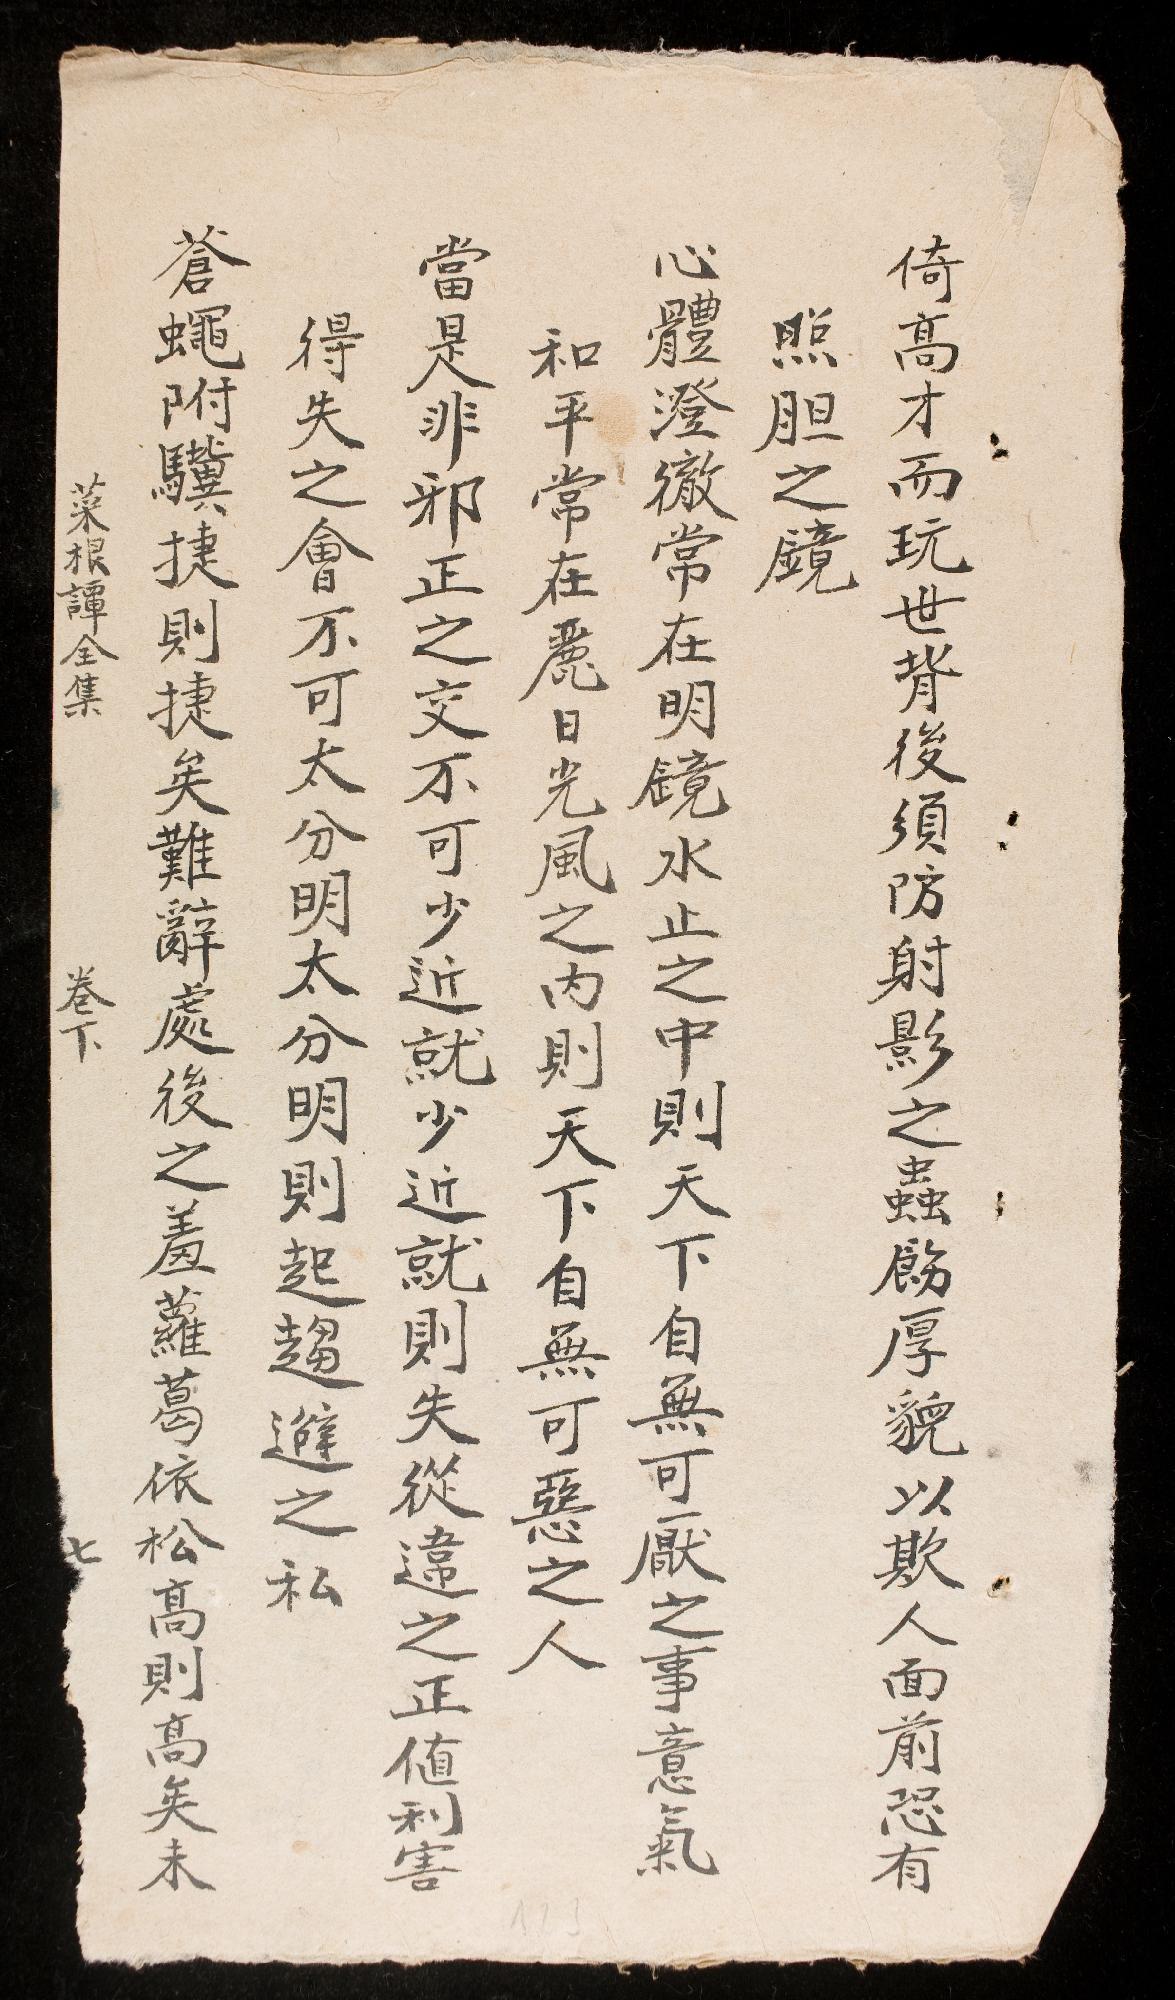 倚高才而玩世背後須防射影之蟲飾厚貌以欺人面前恐有
照胆之鏡
心體澄徹常在明鏡水止之中則天下自無可厭之事意氣
和平常在麗日光風之内則天下自無可惡之人
當是非邪正之交不可少近就少近就則失從違之正值利害
得失之會不可太分明太分明則起趨避之私
蒼蠅附驥捷則捷矣難辭處後之羞蘿葛依松高則高矣未
菜根譚全集 卷下 七